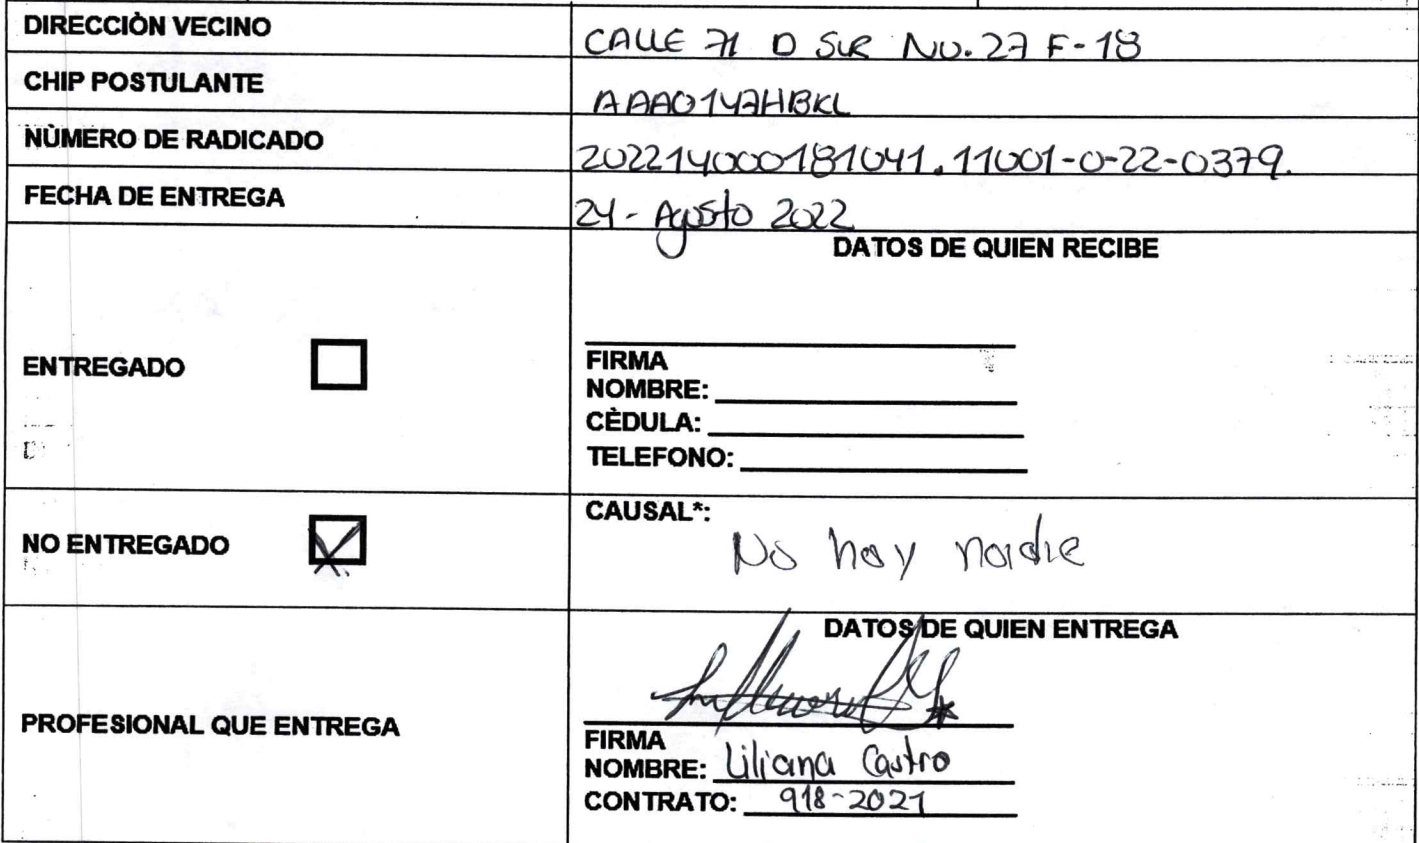 DIRECCIÒN VECINO
CALLE 71 D SUR No. 27 F-18
CHIP POSTULANTE
AAA0147HBKL
NÙMERO DE RADICADO
202214000181041. 11001-0-22-0379.
FECHA DE ENTREGA
24 - Agosto 2022
DATOS DE QUIEN RECIBE
ENTREGADO
FIRMA
NOMBRE:
CÈDULA:
TELEFONO:
NO ENTREGADO
CAUSAL*:
No hay nadie
DATOS DE QUIEN ENTREGA
PROFESIONAL QUE ENTREGA
FIRMA
NOMBRE: Liliana Castro
CONTRATO: 918-2021